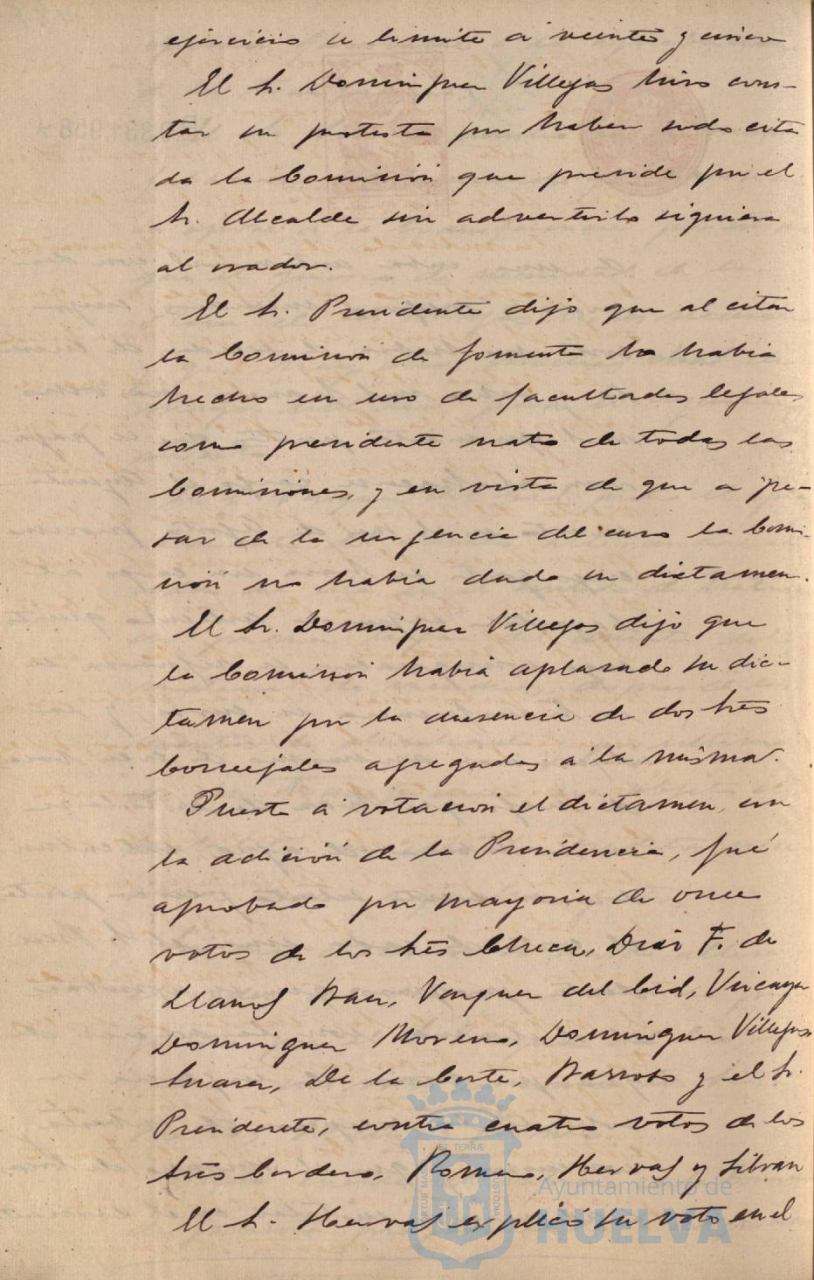 ejercicio se limite á veinte y cinco
El Sr. Dominguez Villegas hizo cons-
tar su protesta por haber sido cita
da la Comisión que preside por el
Sr. Alcalde sin advertirlo siquiera
al orador.
El Sr. Presidente dijo que al citar
la Comisión de fomento lo había
hecho en uso de facultades legales
como presidente nato de todas las
Comisiones, y en vista de que a pe-
sar de la urgencia del caso la Comi-
sión no había dado su dictamen.
El Sr. Dominguez Villegas dijo que
la Comisión había aplazado su dic-
tamen por la ausencia de dos Sres
Concejales agregados á la misma.
Puesto á votación el dictamen con
la adición de la Presidencia, fué
aprobado por mayoria de once
votos de los Sres Checa, Diaz F. de
Llanos Vazquez del Cid, Vizcaya
Dominguez Moreno, Dominguez Villegas
Suarez, De la Corte, Barroso y el Sr.
Presidente, contra cuatro votos de los
Sres Cordero, Romero, Hervas y Silvan
El Sr. Hervas explicó su voto en el
Ayuntamiento de
HUELVA